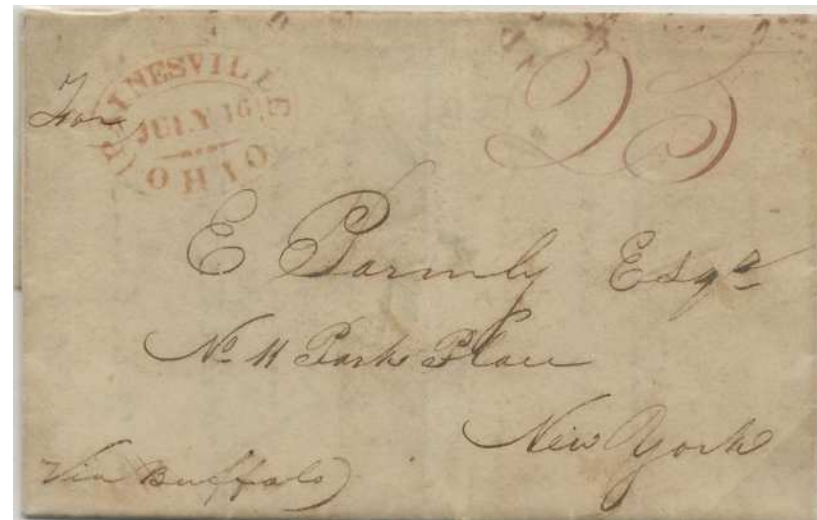 PAINESVILLE
JULY 16
OHIO
25
For
E Parmly Esqr
No 11 Park Place
New York
Via Buffalo